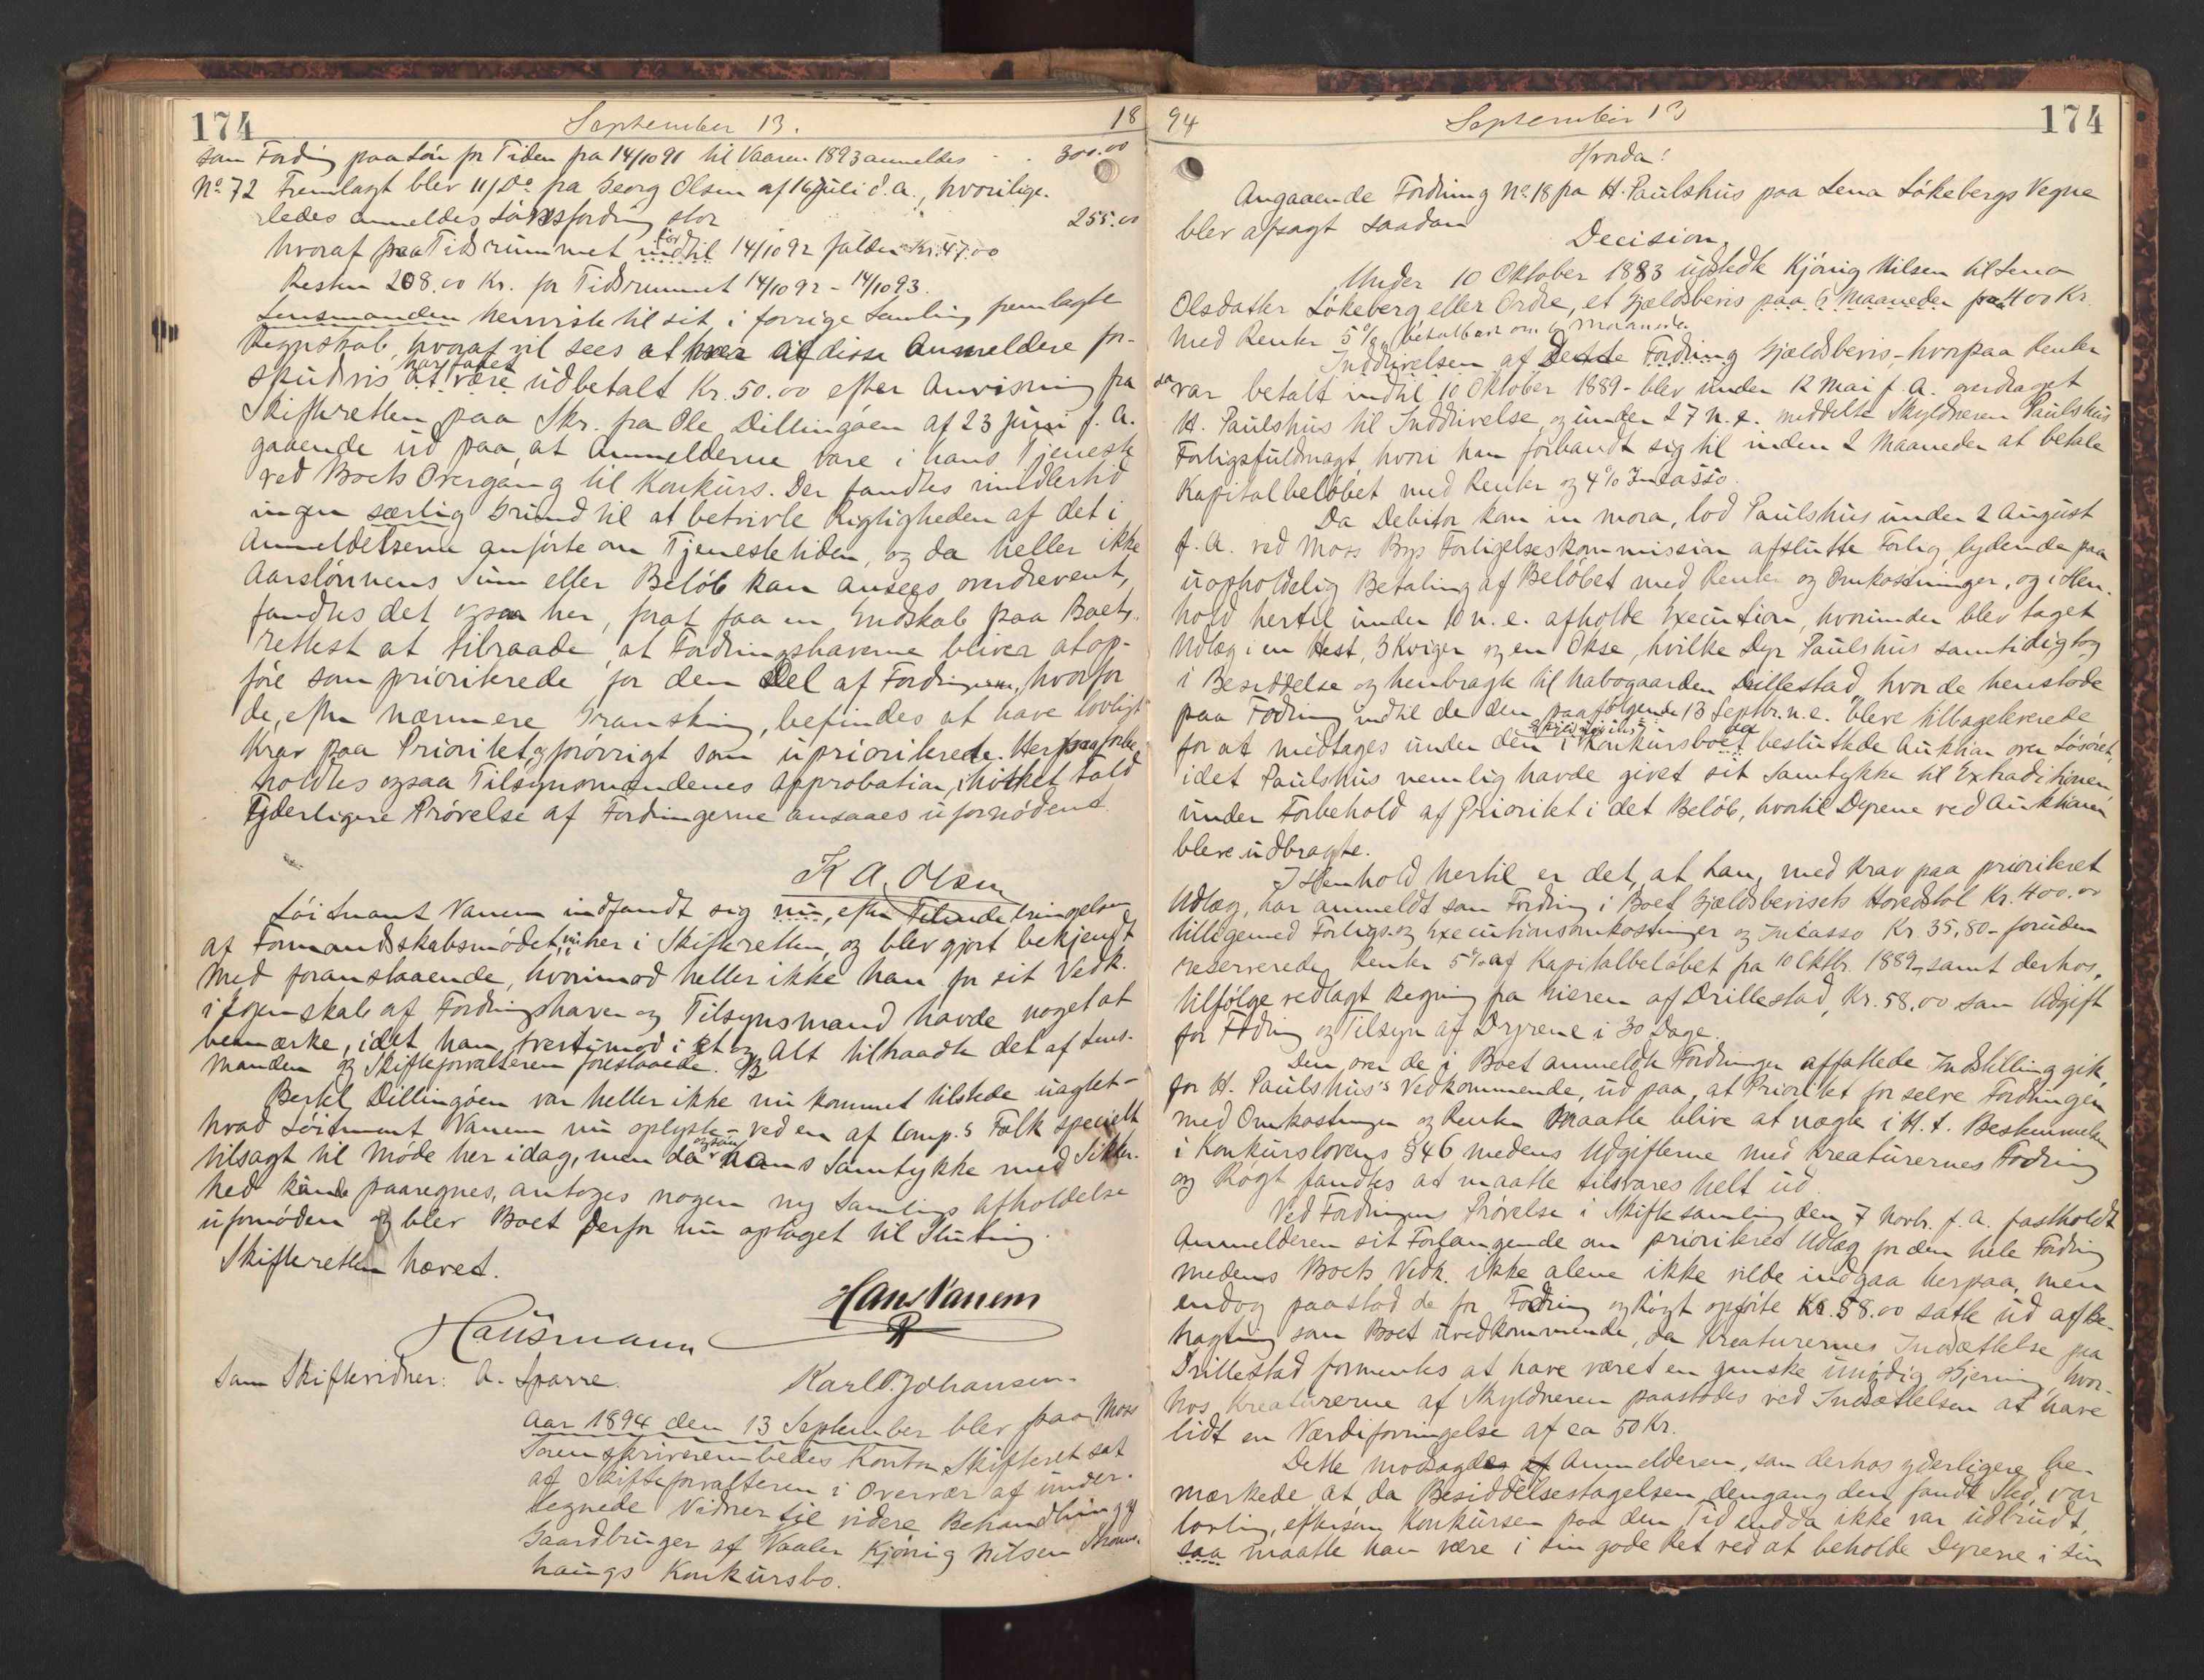 174 September 13. 18
som Fordring paa Løn for Tiden fra 14/10 91 til Vaaren 1893 anmeldes - - 300.00
No. 72 Fremlagt blev 11/Do. fra Georg Olsen af 16 Juli d.A., hvorilige-
ledes anmeldes Lønsfordring stor 255.00
hvoraf paa Tidsrummet før indtil 14/10 92 falder Kr. 47.00
Resten 208.00 Kr. for Tidsrummet 14/10 92 - 14/10 93.
Lensmanden henviste til sit i forrige Samling fremlagte
Regnskab, hvoraf vil sees at hver af disse Anmeldere for-
skudvis har faaet at være udbetalt Kr. 50.00 efter Anvisning fra
Skifteretten paa Skr. fra Ole Dillingøen af 23 Juni f.A.
gaaende ud paa, at Anmelderne vare i hans Tjeneste
ved Boets Overgang til Konkurs. Der fandtes imidlertid
ingen særlig Grund til at betvivle Rigtigheden af det i
Anmeldelserne anførte om Tjenestetiden, og da heller ikke
Aarslønnens Sum eller Beløb kan ansees overdrevent,
fandtes det ogsaa her, for at faa en Endskab paa Boet,
rettest at tilraade, at Fordringshaverne bliver at op-
føre som prioriterede for den Del af Fordringerne, hvorfor
de, efter nærmere Granskning, befindes at have lovligt
Krav paa Prioritet, og forøvrigt som uprioriterede. Herpaa forbe-
holdtes ogsaa Tilsynsmændenes Approbation, i hvilket Fald
yderligere Prøvelse af Fordringerne ansaaes ufornødent.
K A. Olsen
Løitnant Vanem indfandt sig nu, efter Tilendebringelsen
af Formandskabsmødet, her i Skifteretten, og blev gjort bekjendt
med foranstaaende, hvorimod heller ikke han for sit Vedk.
i Egenskab af Fordringshaver og Tilsynsmand havde noget at
bemærke, idet han tvertimod i Et og Alt tilraadte det af Lens-
manden og Skifteforvalteren foreslaaede.
Bertel Dillingøen var heller ikke nu kommet tilstede uagtet -
hvad Løitnant Vanem nu oplyste - ved en af Comp.s Folk specielt
tilsagt til Møde her idag, men da ogsaa hans Samtykke med Sikker-
hed kunde paaregnes, antoges nogen ny Samlings Afholdelse
ufornøden og blev Boet derfor nu optaget til Slutning.
Skifteretten hævet.
Hans Vanem
Hausmann
Som Skiftevidner: A. Sparre. Karl B. Johansen.
Aar 1894 den 13 September blev paa Moss
Sorenskriverembedes Kontor Skifteret sat
af Skifteforvalteren i Overvær af under-
tegnede Vidner til videre Behandling af
Gaardbruger af Vaaler Kjønig Nilsen
haugs Konkursbo.
94 September 13 174
Hvorda:
Angaaende Fordring No. 18 fra H. Paulshus paa Lena Løkebergs Vegne
blev afsagt saadan
Decision.
Under 10 Oktober 1883 udstedte Kjønig Nilsen til Lena
Olsdatter Løkeberg eller Ordre, et Gjældsbevis paa 6 Maaneder paa 400 Kr.
med Renter 5%, betalbart om 6 Maaneder.
Inddrivelsen af Dette Fordring Gjældsbevis, - hvorpaa Renter
da var betalt indtil 10 Oktober 1889 - blev under 12 Mai f.A. overdraget
H. Paulshus til Inddrivelse, og under 27 n.e. meddelte Skyldneren Paulshus
Forligsfuldmagt, hvori han forbandt sig til inden 2 Maaneder at betale
Kapitalbeløbet med Renter og 4% Incasso.
Da Debitor kom in mora, lod Paulshus under 2 August
f.A. ved Moss Bys Forligelseskommission afslutte Forlig, lydende paa
uopholdelig Betaling af Beløbet med Renter og Omkostninger, og i Hen-
hold hertil under 10 n.e. afholde Execution, hvorunder blev taget
Udlæg i en Hest, 3 Kviger og en Okse, hvilke Dyr Paulshus samtidig tog
i Besiddelse og henbragte til Nabogaarden Drillestad, hvor de henstode
paa Fodring indtil de den paafølgende 13 Septbr. n.e. bleve tilbageleverede
for at medtages under den i Konkursboet besluttede Auktion over Løsøret,
idet Paulshus nemlig havde givet sit Samtykke til Extraditionen
under Forbehold af Prioritet i det Beløb, hvortil Dyrene ved Auktionen
bleve udbragte.
I Henhold hertil er det, at han, med Krav paa prioriteret
Udlæg, har anmeldt som Fordring i Boet Gjældsbevisets Hovedstol Kr. 400.00
tilligemed Forligs- og Executionsomkostninger og Incasso Kr. 35,80 - foruden
reserverede Renter 5% af Kapitalbeløbet fra 10 Oktbr. 1889, samt derhos,
tilfølge vedlagt Regning fra Eieren af Drillestad, Kr. 58,00 som Udgift
for Fodring og Tilsyn af Dyrene i 30 Dage.
Den over de i Boet anmeldte Fordringer affattede Indstilling gik,
for H. Paulshus's Vedkommende, ud paa, at Prioritet for selve Fordringen
med Omkostninger og Renter maatte blive at nægte i H. t. Bestemmelsen
i Konkurslovens § 46 medens Udgifterne med Kreaturernes Fodring
og Røgt fandtes at maatte tilsvares helt ud.
Ved Fordringens Prøvelse i Skiftesamling den 7 Novbr. f.A. fastholdt
Anmelderen sit Forlangende om prioriteret Udlæg for den hele Fordring
medens Boets Vedk. ikke alene ikke vilde indgaa herpaa, men
endog paastod de for Fodring og Røgt opførte Kr. 58.00 satte ud af Be-
tragtning som Boet uvedkommende, da Kreaturernes Indsættelse paa
Drillestad formentes at have været en ganske unødig Gjerning, hvor-
hos Kreaturerne af Skyldneren paastodes ved Indsættelsen at have
lidt en Værdiforringelse af ca 50 Kr.
Dette modsagdes af Anmelderen, som derhos yderligere be-
mærkede at da Besiddelsestagelsen dengang den fandt Sted, var
lovlig, eftersom Konkursen paa den Tid endda ikke var udbrudt,
saa maatte han være i sin gode Ret ved at beholde Dyrene i sin